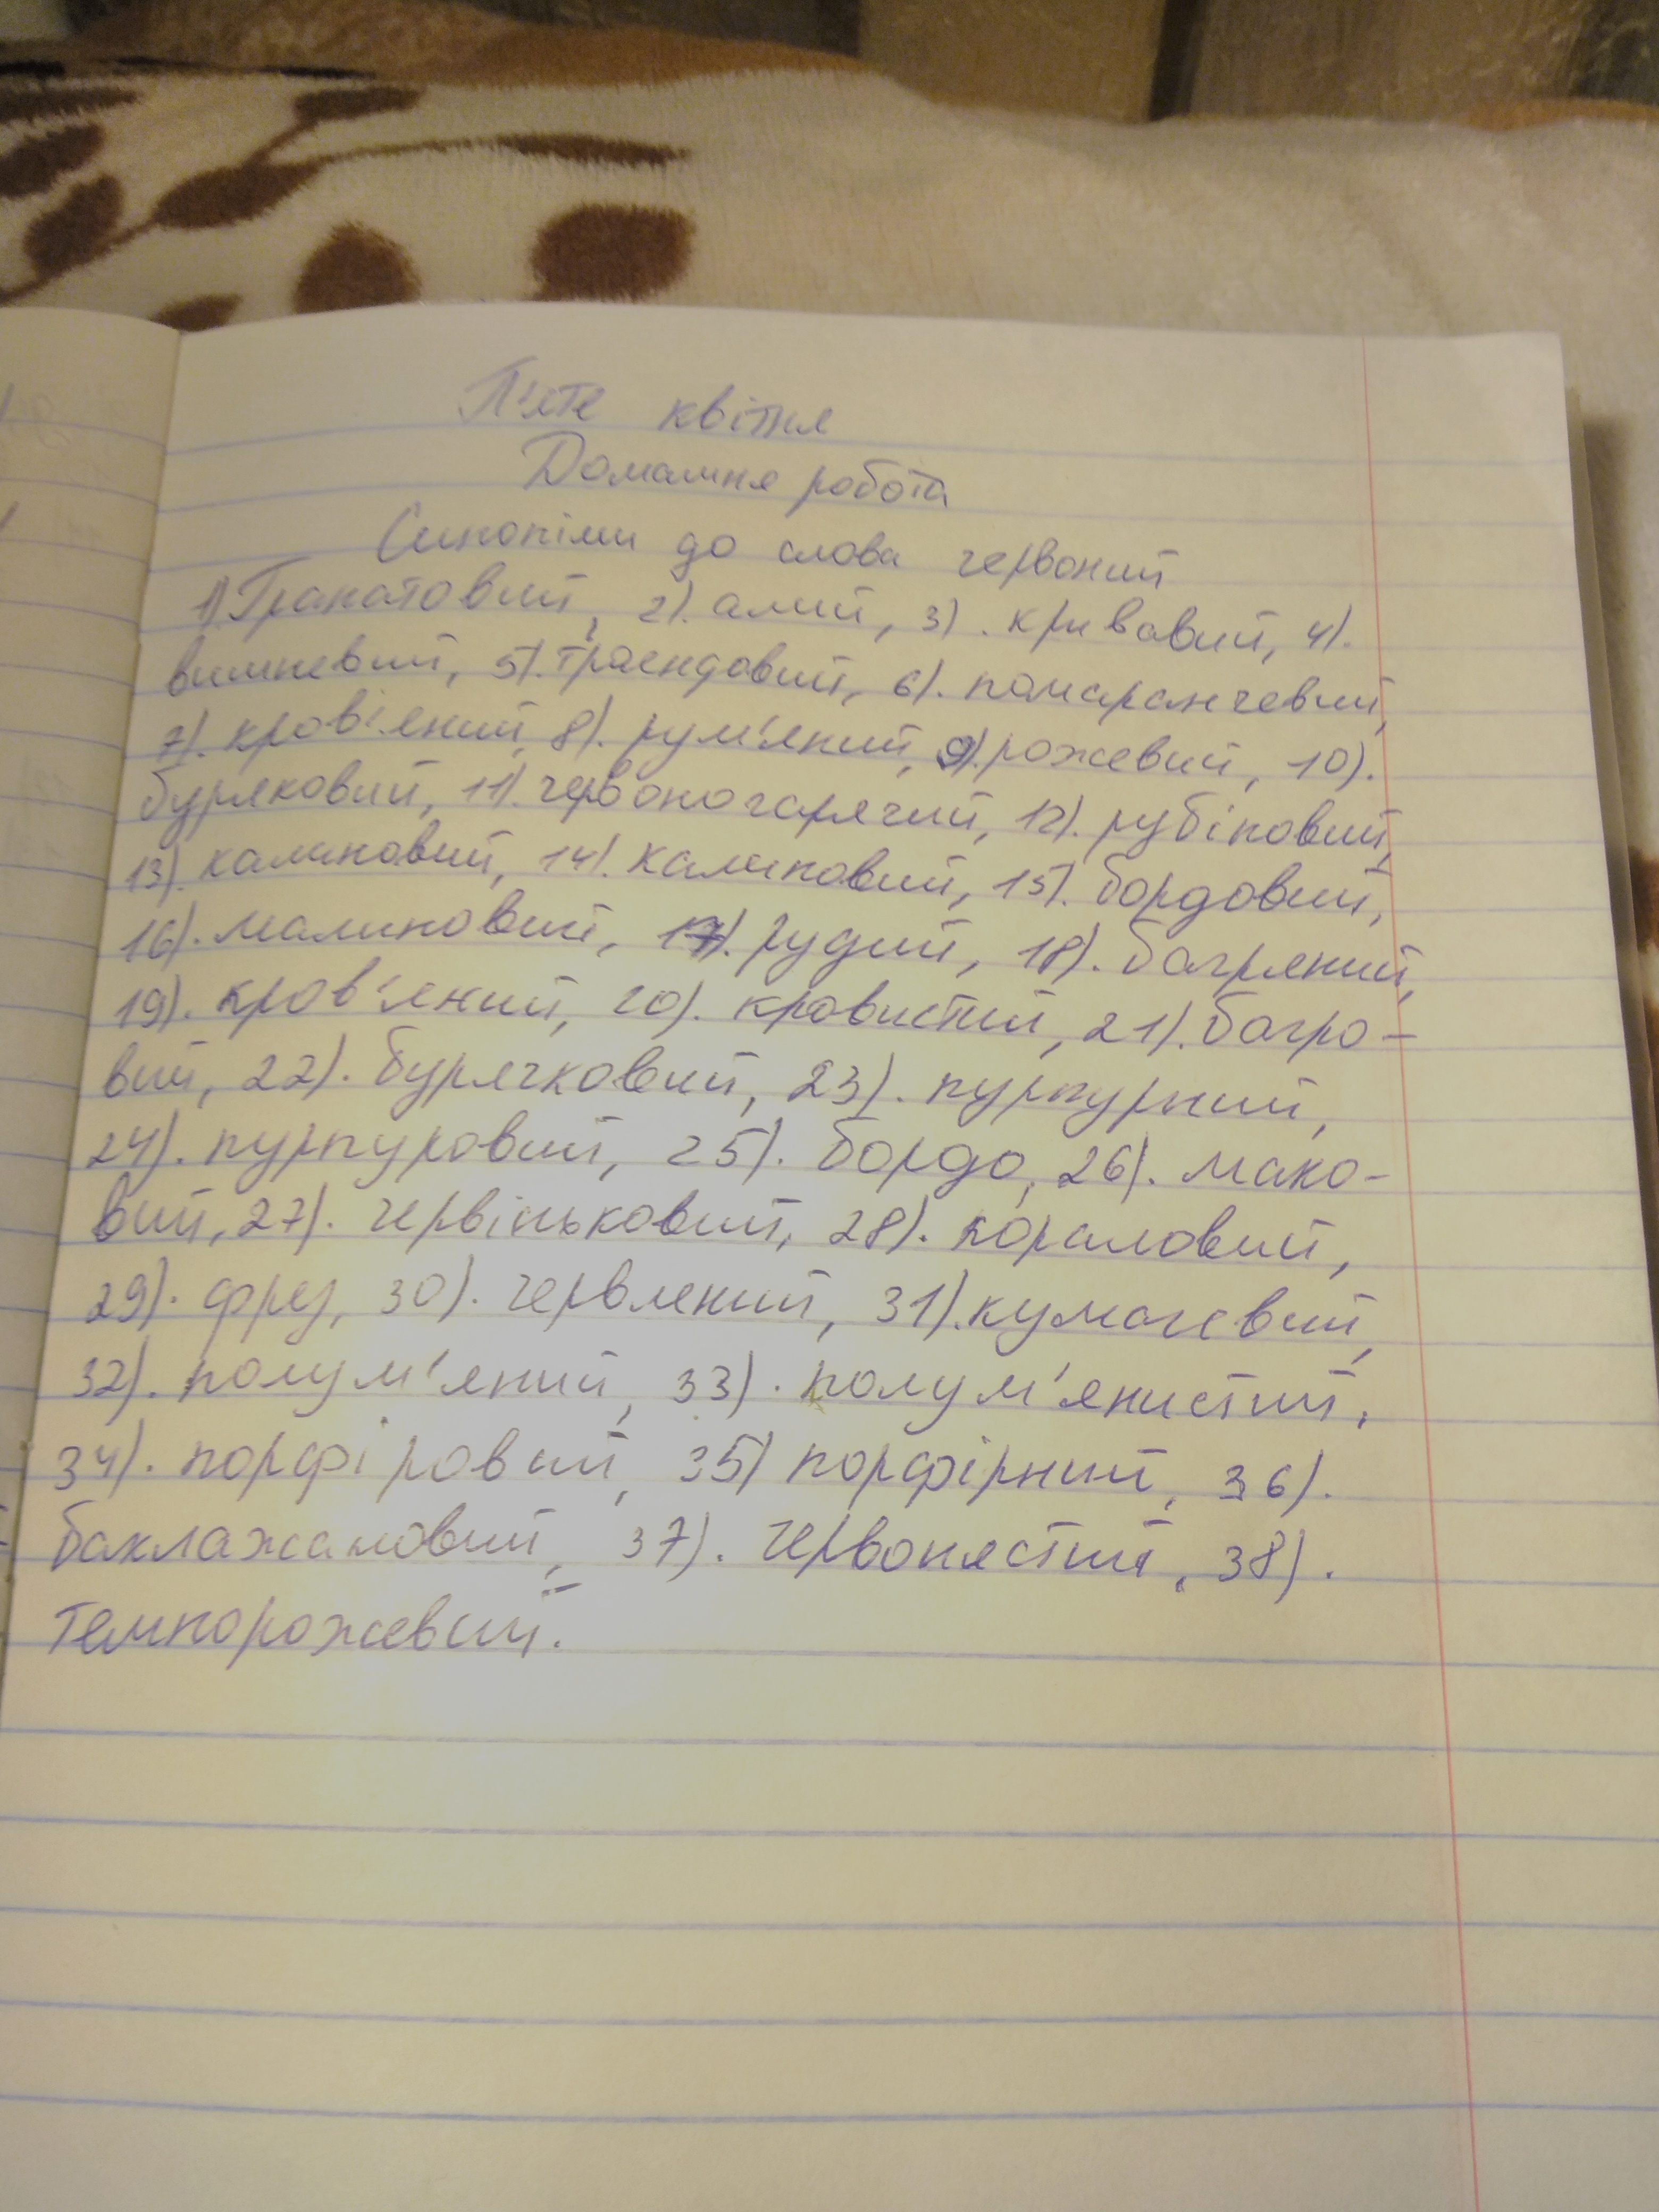 П'яте квітня
Домашня робота
Синоніми до слова червоний
1) Гранатовий, 2). алий, 3). кривавий, 4).
вишневий, 5). трояндовий, 6). помаранчевий,
7). кров'яний, 8). рум'яний, 9). рожевий, 10).
буряковий, 11). червоногарячий, 12). рубіновий,
13). калиновий, 14). калиновий, 15). бордовий,
16). малиновий, 17). рудий, 18). багряний,
19). кров'яний, 20). кровистий, 21). багро-
вий, 22). бурячковий, 23). пурпурний,
24). пурпуровий, 25). бордо, 26). мако-
вий, 27). червіньковий, 28). кораловий,
29). фрез, 30). червлений, 31). кумачевий,
32). полум'яний, 33). полум'янистий,
34). порфіровий, 35) порфірний, 36).
баклажановий, 37). червонястий, 38).
темнорожевий.